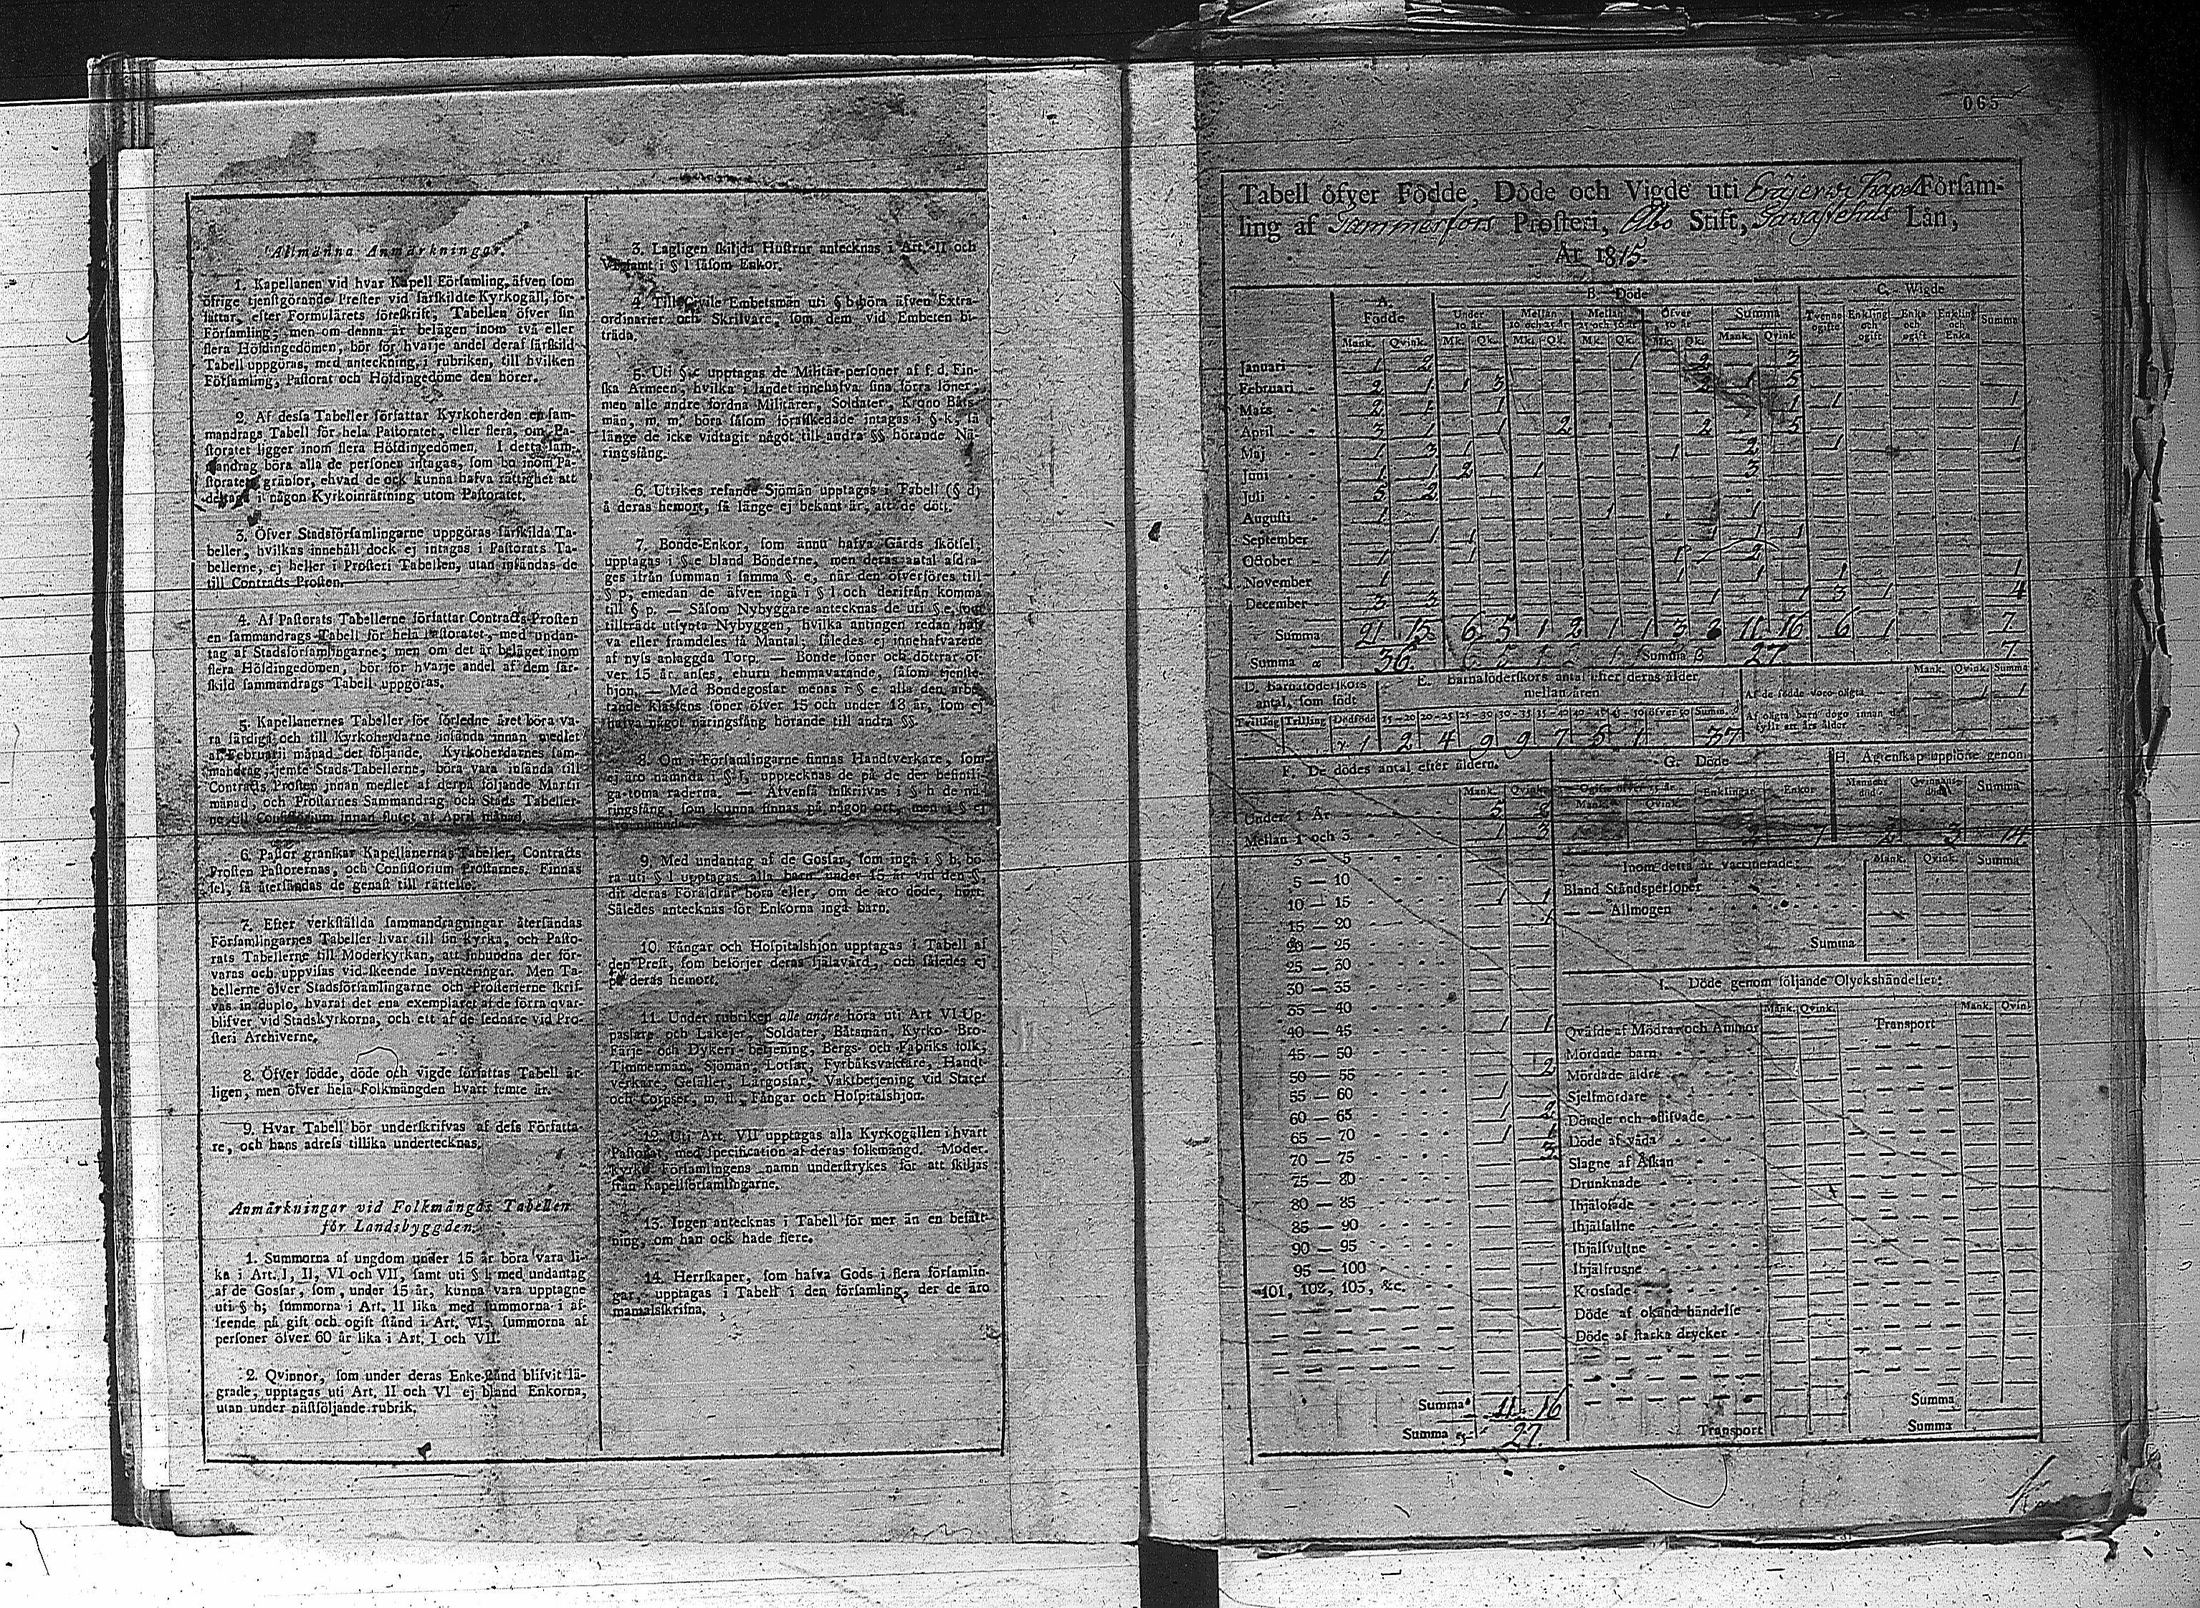 Allmänna Anmärkningar.
1. Kapellanen vid hvar Kapell Församling, äfven som
öfrige tjenstgörande Prester vid särskildte Kyrkogäll, för-
fattar, efter Formulärets föreskrift, Tabellen öfver sin
Församling; men om denna är belägen inom två eller
flera Höfdingedömen, bör för hvarje andel deraf särskild
Tabell uppgöras, med anteckning, i rubriken, till hvilken
Församling, Pastorat och Höfdingedöme den hörer.
2. Af dessa Tabeller författar Kyrkoherden en sam-
mandrags Tabell för hela Pastoratet, eller flera, om Pa-
storatet ligger inom flera Höfdingedömen. I detta sam-
mandrag böra alla de personer intagas, som bo inom Pa-
storatets gränsor, ehvad de ock kunna hafva rättighet att
deltaga i någon Kyrkoinrättning utom Pastoratet.
3. Öfver Stadsförsamlingarne uppgöras särskilda Ta-
beller, hvilkas innehåll dock ej intagas i Pastorats Ta-
bellerne, ej heller i Prosteri Tabellen, utan insändas de
till Contracts Prosten.
4. Af Pastorats Tabellerne författar Contracts-Prosten
en sammandrags Tabell för hela Pastoratet, med undan-
tag af Stadsförsamlingarne; men om det är beläget inom
flera Höfdingedömen, bör för hvarje andel af dem sär-
skild sammandrags Tabell uppgöras.
5. Kapellanernes Tabeller för förledne året böra va-
ra färdige och till Kyrkoherdarne insända innan medlet
af Februarii månad det följande. Kyrkoherdarnes sam-
mandrag, jemte Stads-Tabellerne, böra vara insända till
Contracts Prosten innan medlet af derpå följande Martii
månad, och Prostarnes Sammandrag och Stads Tabeller-
ne till Consistorium innan slutet af April månad.
6. Pastor granskar Kapellanernas Tabeller, Contracts
Prosten Pastorernas, och Consistorium Prostarnes. Finnas
fel, så återsändas de genast till rättelse.
7. Efter verkställda sammandragningar återsändas
Församlingarnes Tabeller hvar till sin kyrka, och Pasto-
rats Tabellerne till Moderkyrkan, att inbundna der för-
varas och uppvisas vid skeende Inventeringar. Men Ta-
bellerne öfver Stadsförsamlingarne och Prosterierne skrif-
vas in duplo, hvaraf det ena exemplaret af de förra qvar-
blifver vid Stadskyrkorna, och ett af de sednare vid Pro-
steri Archiverne.
8. Öfver födde, döde och vigde författas Tabell år-
ligen, men öfver hela Folkmängden hvart femte år.
9. Hvar Tabell bör underskrifvas af dess Författa-
re, och hans adress tillika undertecknas.
Anmärkningar vid Folkmängds Tabellen
för Landsbyggden.
1. Summorna af ungdom under 15 år böra vara li-
ka i Art. I, II, VI och VII, samt uti § l med undantag
af de Gossar, som, under 15 år, kunna vara upptagne
uti § h; summorna i Art. II lika med summorna i af-
seende på gift och ogift stånd i Art. VI; summorna af
personer öfver 60 år lika i Art. I och VII.
2. Qvinnor, som under deras Enke-stånd blifvit lä-
grade, upptagas uti Art. II och VI ej bland Enkorna,
utan under nästföljande rubrik.
3. Lagligen skiljda Hustrur antecknas i Art. II och
VI samt i § l såsom Enkor.
4. Till Civile Embetsmän uti § b böra äfven Extra-
ordinarier och Skrifvare, som dem vid Embeten bi-
träda.
5. Uti § c upptagas de Militär-personer af f. d. Fin-
ska Arméen, hvilka i landet innehafva sina förra löner;
men alle andre fordna Militärer, Soldater, Krono Båts-
män, m. m. böra såsom förafskedade intagas i § k, så
länge de icke vidtagit något till andra §§ hörande Nä-
ringsfång.
6. Utrikes resande Sjömän upptagas i Tabell (§ d)
å deras hemort, så länge ej bekant är, att de dött.
7. Bonde-Enkor, som ännu hafva Gårds skötsel,
upptagas i § e bland Bönderne, men deras antal afdra-
ges ifrån summan i samma §. e, när den öfverföres till
§ p, emedan de äfven ingå i § l och derifrån komma
till § p. — Såsom Nybyggare antecknas de uti § e, som
tillträdt utsynta Nybyggen, hvilka antingen redan haf-
va eller framdeles få Mantal; således ej innehafvarene
af nyss anlaggda Torp. — Bonde söner och döttrar öf-
ver 15 år anses, ehuru hemmavarande, såsom tjenste-
hjon. — Med Bondegossar menas i § e alla den arbe-
tande klassens söner öfver 15 och under 18 år, som ej
hafva något näringsfång hörande till andra §§.
8. Om i Församlingarne finnas Handtverkare, som
ej äro nämnda i § f, upptecknas de på de der befintli-
ga toma raderna. — Äfvenså inskrifvas i § h de nä-
ringsfång, som kunna finnas på någon ort, men i § ej
9. Med undantag af de Gossar, som ingå i § h, bö-
ra uti § l upptagas alla barn under 15 år vid den §,
dit deras Föräldrar höra eller, om de äro döde, hört.
Således antecknas för Enkorna inga barn.
10. Fångar och Hospitalshjon upptagas i Tabell af
den Prest, som besörjer deras själavård, och således ej
på deras hemort.
11. Under rubriken alle andre höra uti Art VI Up-
passare och Lakejer, Soldater, Båtsmän, Kyrko- Bro-
Färje- och Dykeri-betjening, Bergs- och Fabriks folk,
Timmermän, Sjömän, Lotsar, Fyrbåksvaktare, Handt-
verkare, Gesäller, Lärgossar, Vaktbetjening vid Stater
och Corpser, m. fl., Fångar och Hospitalshjon.
12. Uti Art. VII upptagas alla Kyrkogällen i hvart
Pastorat, med specification af deras folkmängd. Moder-
Kyrko Församlingens namn understrykes för att skiljas
från Kapellförsamlingarne.
13. Ingen antecknas i Tabell för mer än en befatt-
ning, om han ock hade flere.
14. Herrskaper, som hafva Gods i flera församlin-
gar, upptagas i Tabell i den församling, der de äro
mantalsskrifna.
065
Tabell öfver Födde, Döde och Vigde uti Eräjerwi Kapell Försam-
ling af Tammerfors Prosteri, Åbo Stift, Tavastehus Län,
År 1815.
A. Födde B. Döde C. Wigde
Under 10 år Mellan 10 och 25 år Mellan 25 och 50 år Öfver 50 år Summa Tvenne ogifte Enkling och ogift Enka och ogift Enkling och Enka Summa
Mank. Qvink. Mk. Qk. Mk. Qk. Mk. Qk. Mk. Qk. Mank. Qvink.
Januari 1 2 1 2 3
Februari 2 1 1 3 2 1 5
Mars 2 1 1 1 1 1
April 3 1 1 2 2 5
Maj 1 3 1 1 2 1 1
Juni 1 1 2 1 3
Juli 5 2
Augusti 1 1 1
September 1 1 1
October 1 1 1 2
November 1 1 1 1 1
December 3 3 1 1 3 1 4
Summa 21 15 6 5 1 2 1 1 3 8 11 16 6 1 7
Summa 36. Summa 27. 7
D. Barnaföderskors antal, som födt
Tvilling Trilling Dödfödd
1
E. Barnaföderskors antal efter deras ålder mellan åren
15-20 20-25 25-30 30-35 35-40 40-45 45-50 öfver 50 Summa
2 4 9 9 7 5 1 37
Mank. Qvink. Summa
Af de födde voro oägta 1 1
Af oägta barn dogo innan de fyllt ett års ålder
F. De dödes antal efter åldern.
Mank. Qvink.
Under 1 År 5 2
Mellan 1 och 3 1 3
3 — 5
5 — 10
10 — 15 1 1
15 — 20 1
20 — 25
25 — 30
30 — 35
35 — 40
40 — 45 1 1
45 — 50
50 — 55 2
55 — 60 1
60 — 65 1 2
65 — 70 1 1
70 — 75 3
75 — 80
80 — 85
85 — 90
90 — 95
95 — 100
101, 102, 103, &c.
Summa 11 16
Summa 27.
G. Döde
Ogifte öfver 15 år Enklingar Enkor
Mank. Qvink.
H. Ägtenskap upplöste genom
Mannens död Qvinnans död Summa
Inom detta år vaccinerade: Mank. Qvink. Summa
Bland Ståndspersoner
— — Allmogen
Summa
I. Döde genom följande Olyckshändelser:
Mank. Qvink. Mank. Qvink
Qväfde af Mödrar och Ammor Transport
Mördade barn
Mördade äldre
Sjelfmördare
Dömde och aflifvade
Döde af våda
Slagne af Åskan
Drunknade
Ihjälofsade
Ihjälfallne
Ihjälsvultne
Ihjälfrusne
Krossade
Döde af okänd händelse
Döde af starka drycker
Summa
Transport Summa